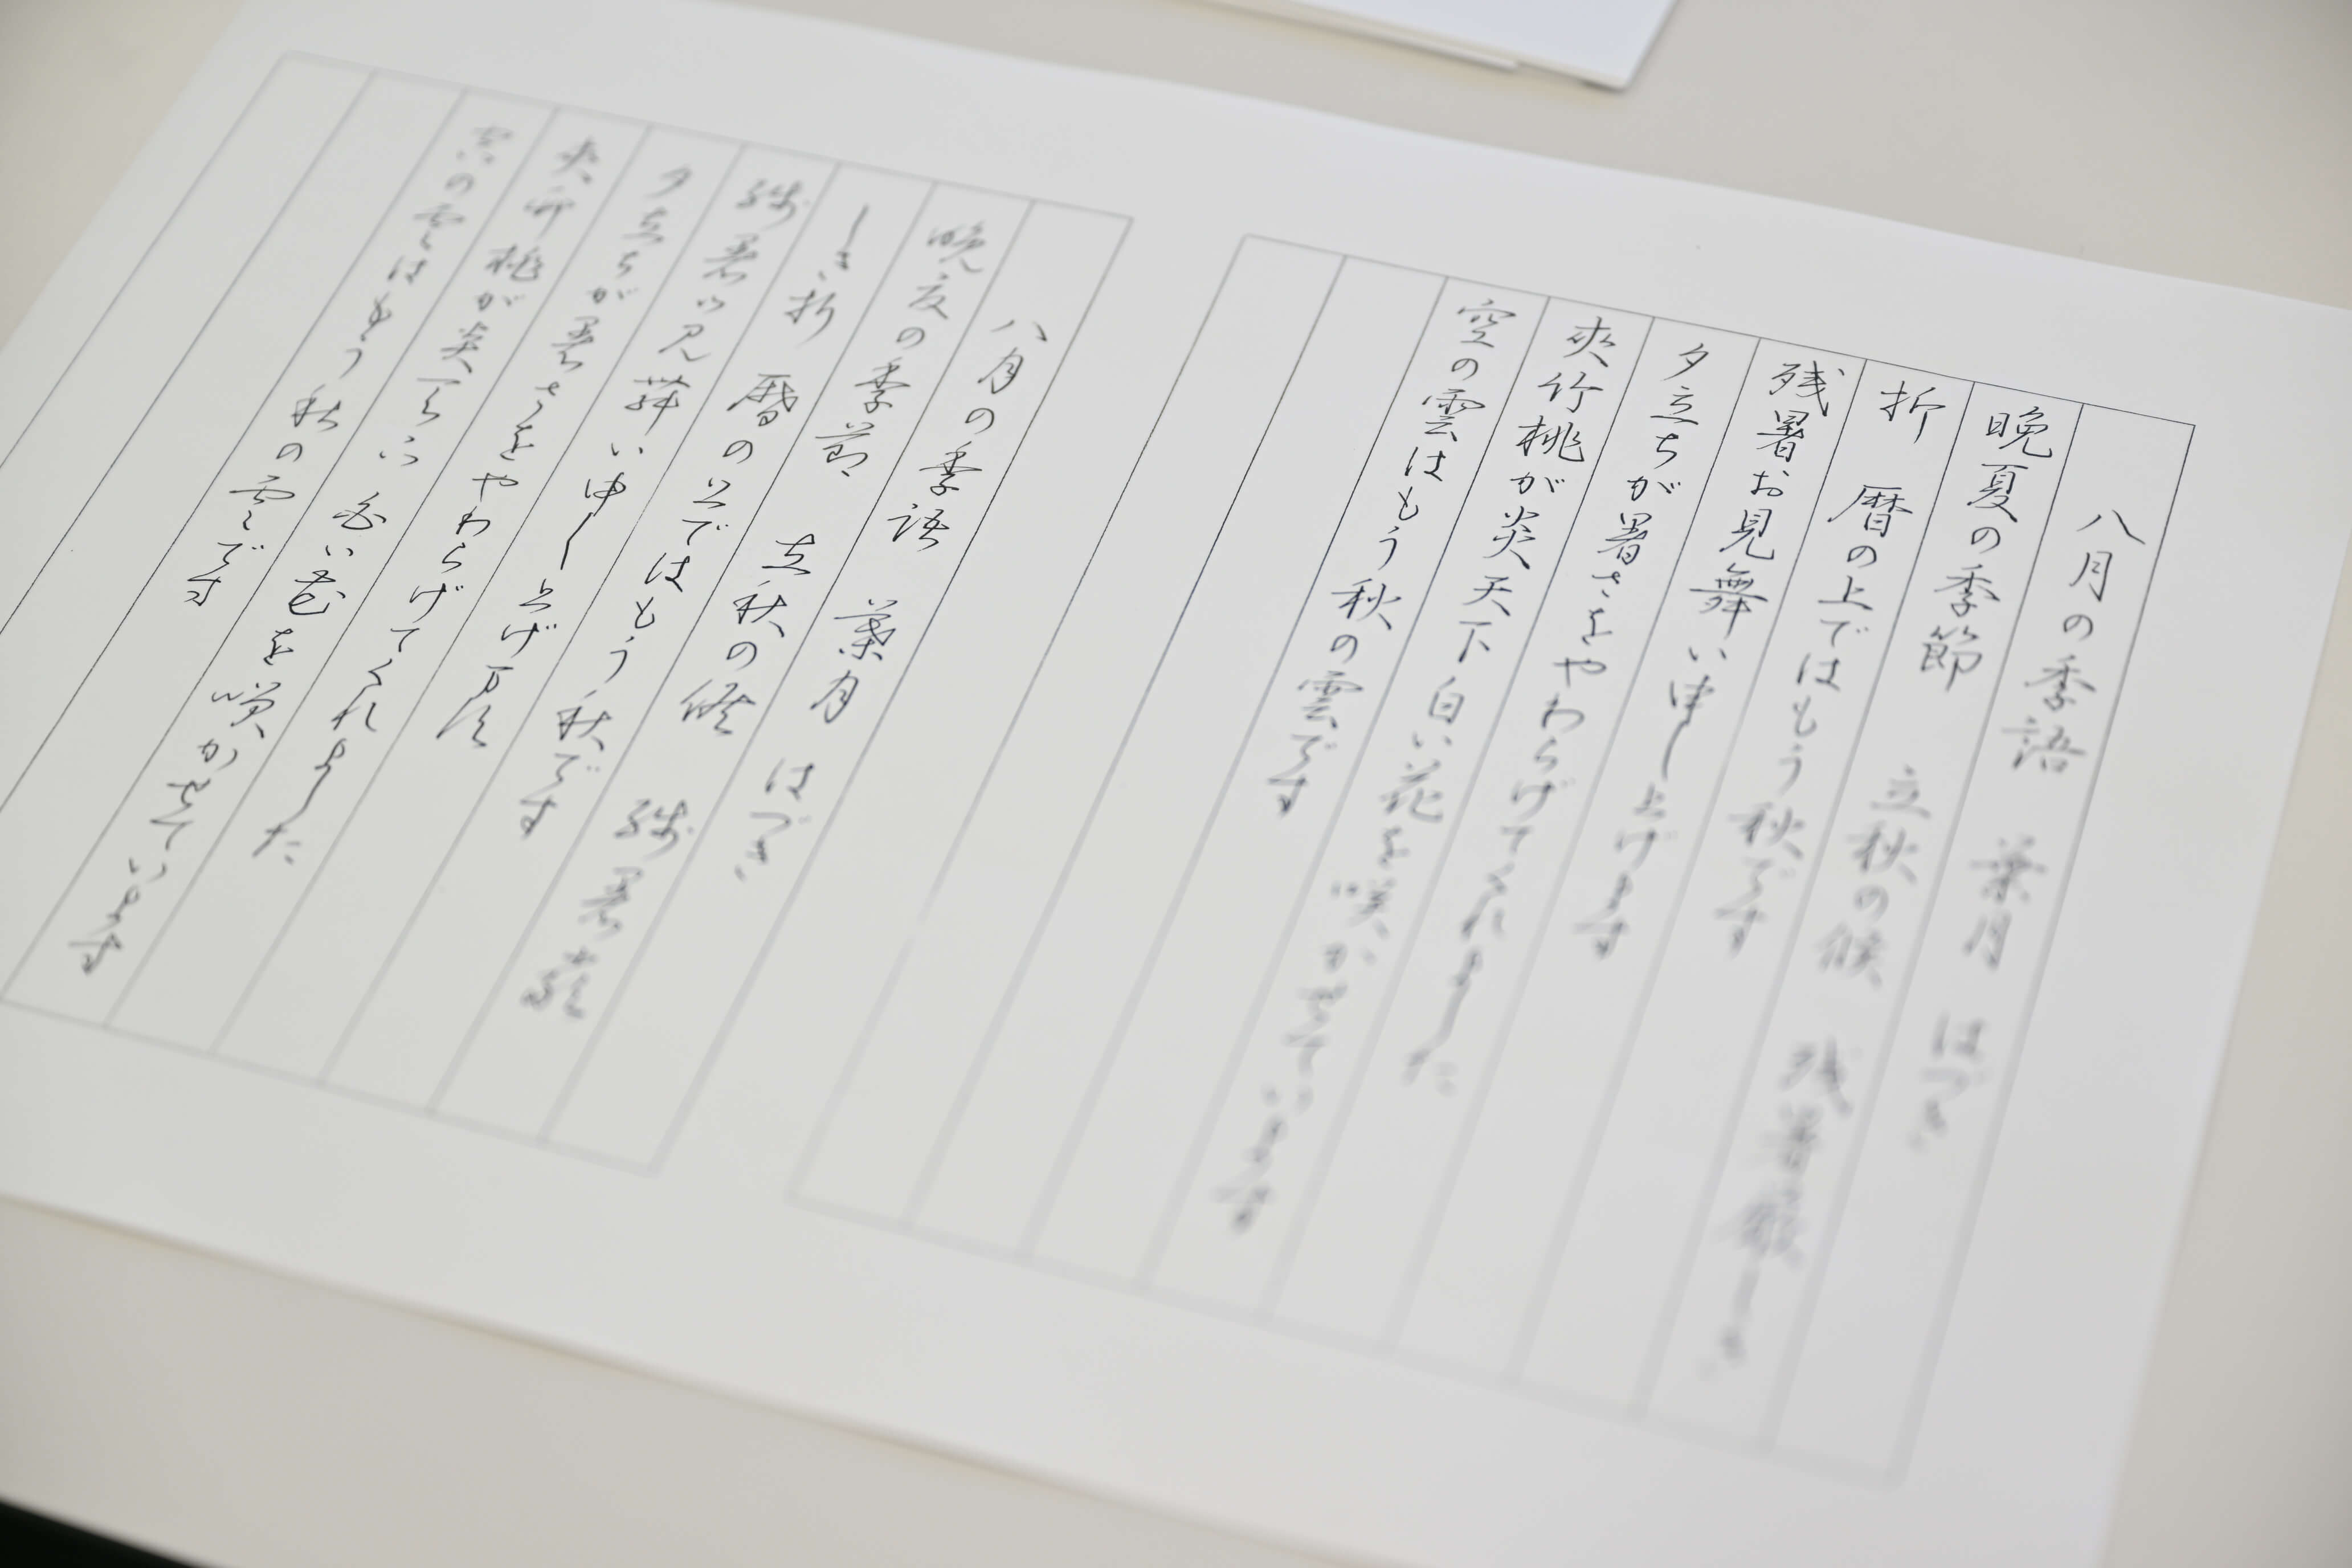 八月の季語　葉月　はづき
晩夏の季節　立秋の候　残暑厳しき
折　暦の上ではもう秋です
残暑お見舞い申し上げます
夕立ちが暑さをやわらげてくれました
夾竹桃が炎天下白い花を咲かせています
空の雲はもう秋の雲です
八月の季語　葉月　はづき
晩夏の季節　立秋の候　残暑厳
しき折　暦の上ではもう秋です
残暑お見舞い申し上げ
夕立ちが暑さをやわらげてくれました
夾竹桃が炎天下白い花を咲かせています
空の雲はもう秋の雲です